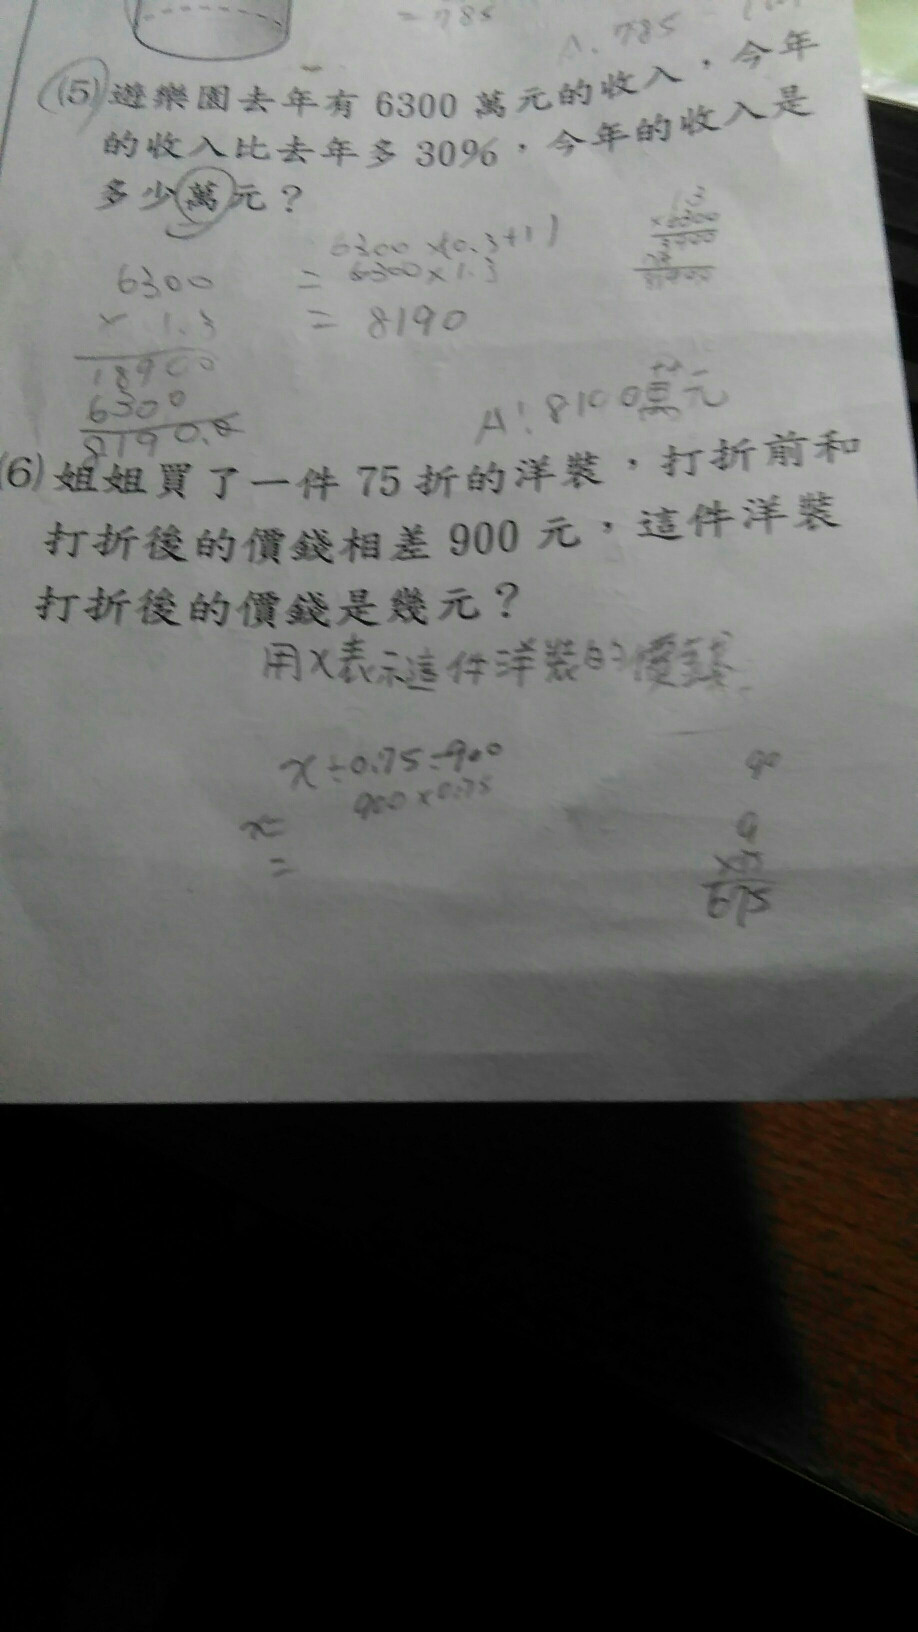 =785
A.785
(5)遊樂園去年有 6300 萬元的收入，今年
的收入比去年多 30%，今年的收入是
多少萬元？
6300×(0.3+1)
=6300×1.3
=8190
6300
× 1.3
18900
6300
8190.0
13
×6300
3900
78
81900
A:8190萬元
(6)姐姐買了一件 75 折的洋裝，打折前和
打折後的價錢相差 900 元，這件洋裝
打折後的價錢是幾元？
用x表示這件洋裝的價錢
x÷0.75=900
x= 900×0.75
=
90
9
×75
675